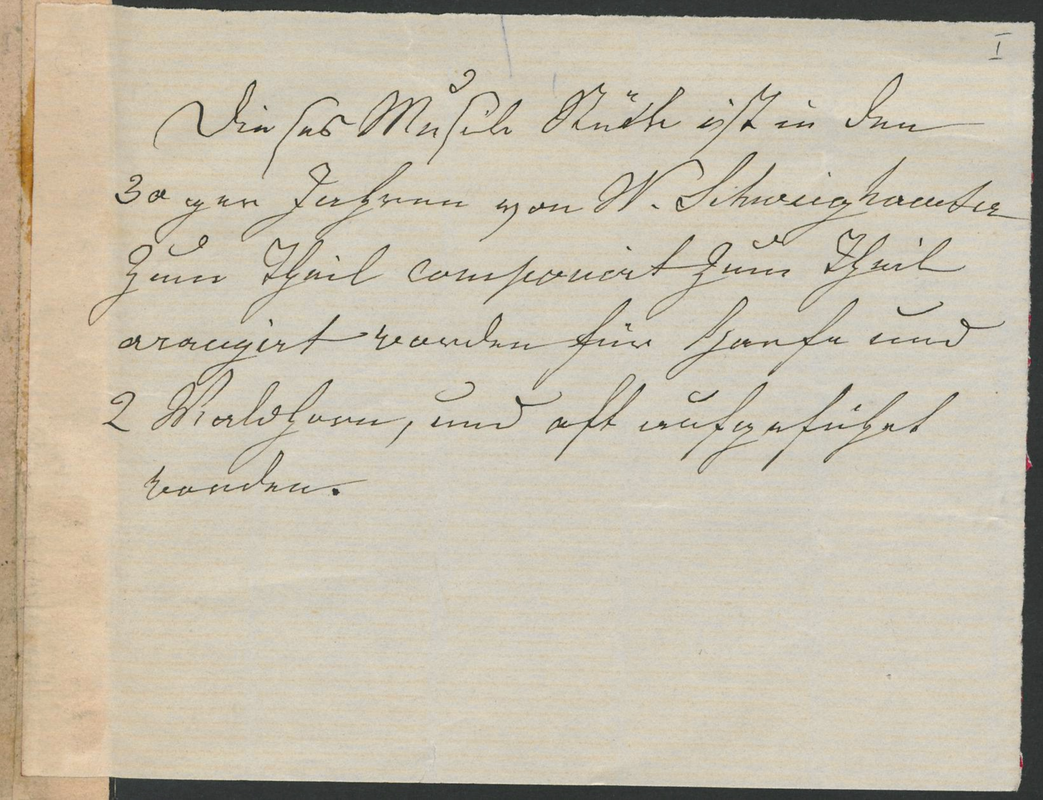 I
Dieses Musik Stück ist in den
30 ger Jahren von W. Schweighauser
zum Theil componirt zum Theil
arangirt worden für Harfe und
2 Waldhorn, und oft aufgeführt
worden.